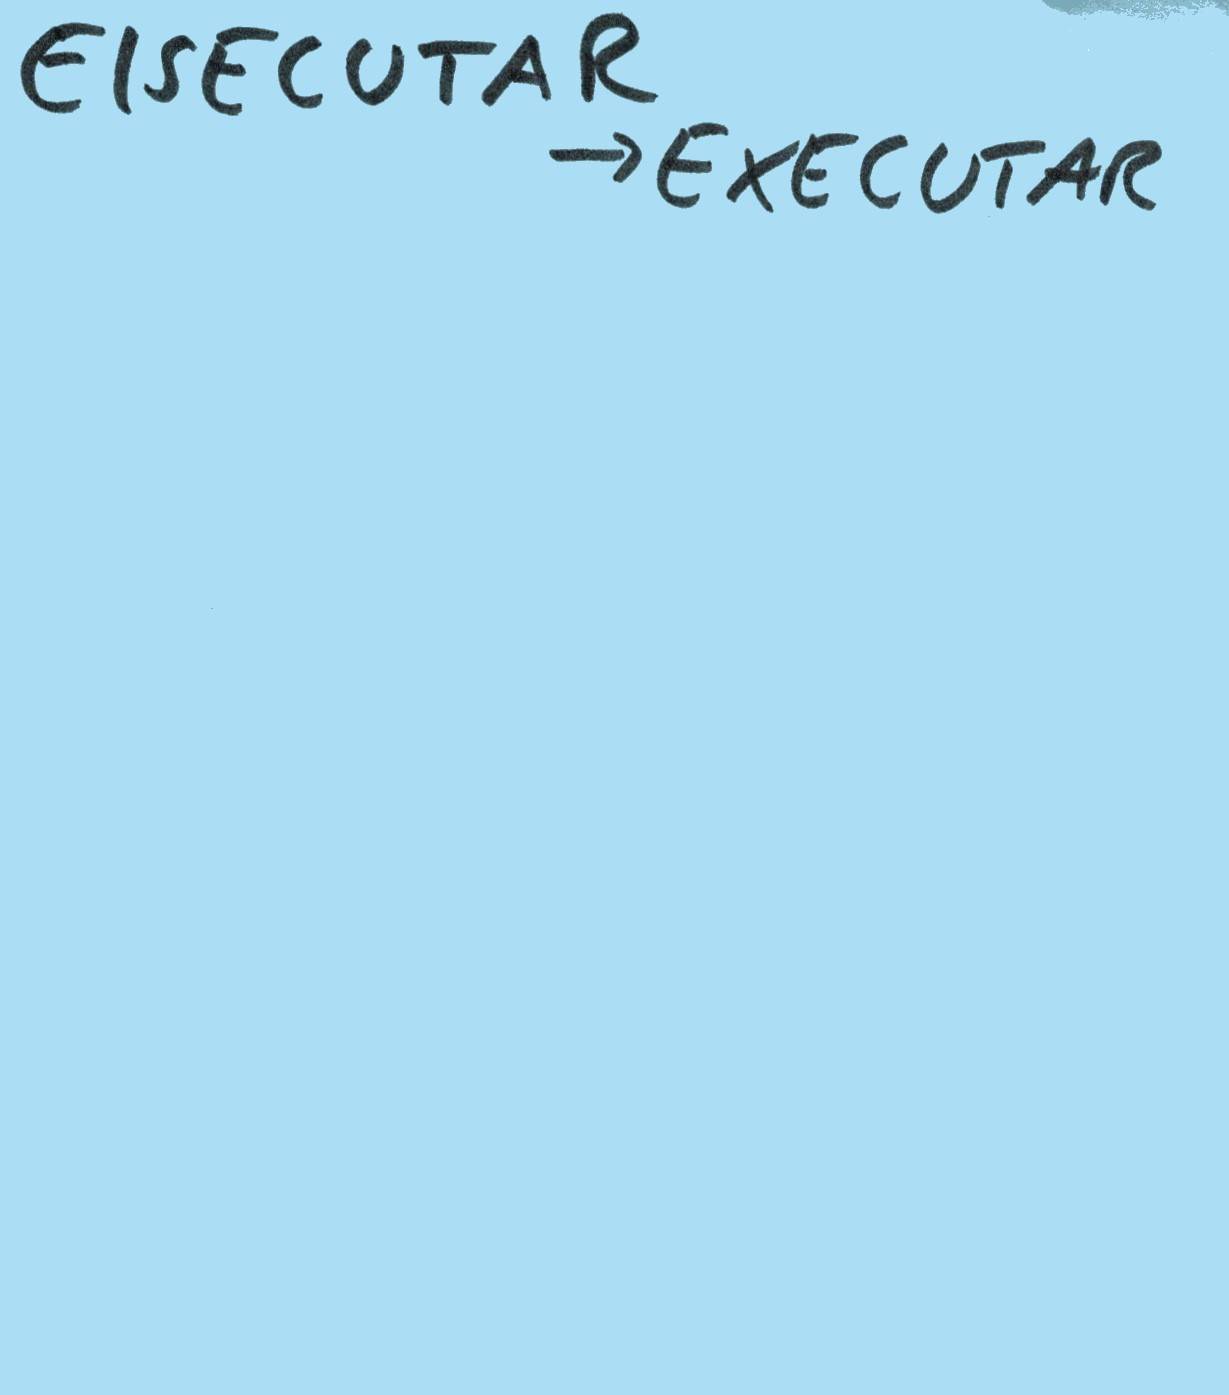 EISECUTAR
→EXECUTAR